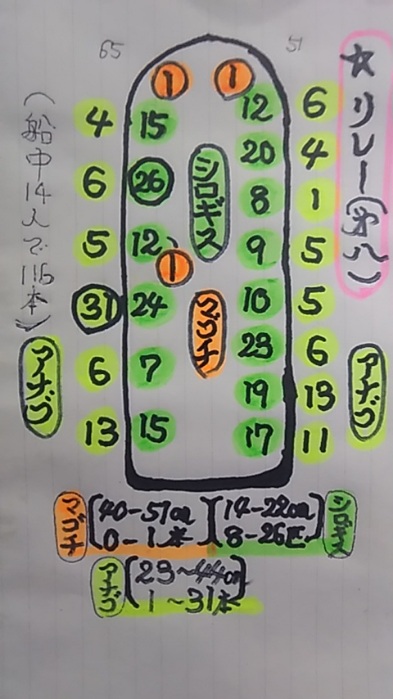 65
51
☆リレー(第八)
(船中14人で115本)
1 1
4 15 12 6
6 26 20 4
シロギス
8 1
5 12 9 5
1
31 24 10 5
マゴチ
6 7 23 6
19 13
13 15 17 11
アナゴ
アナゴ
マゴチ
40-51cm
0-1本
14-22cm
8-26匹
シロギス
アナゴ
23~44cm
1~31本